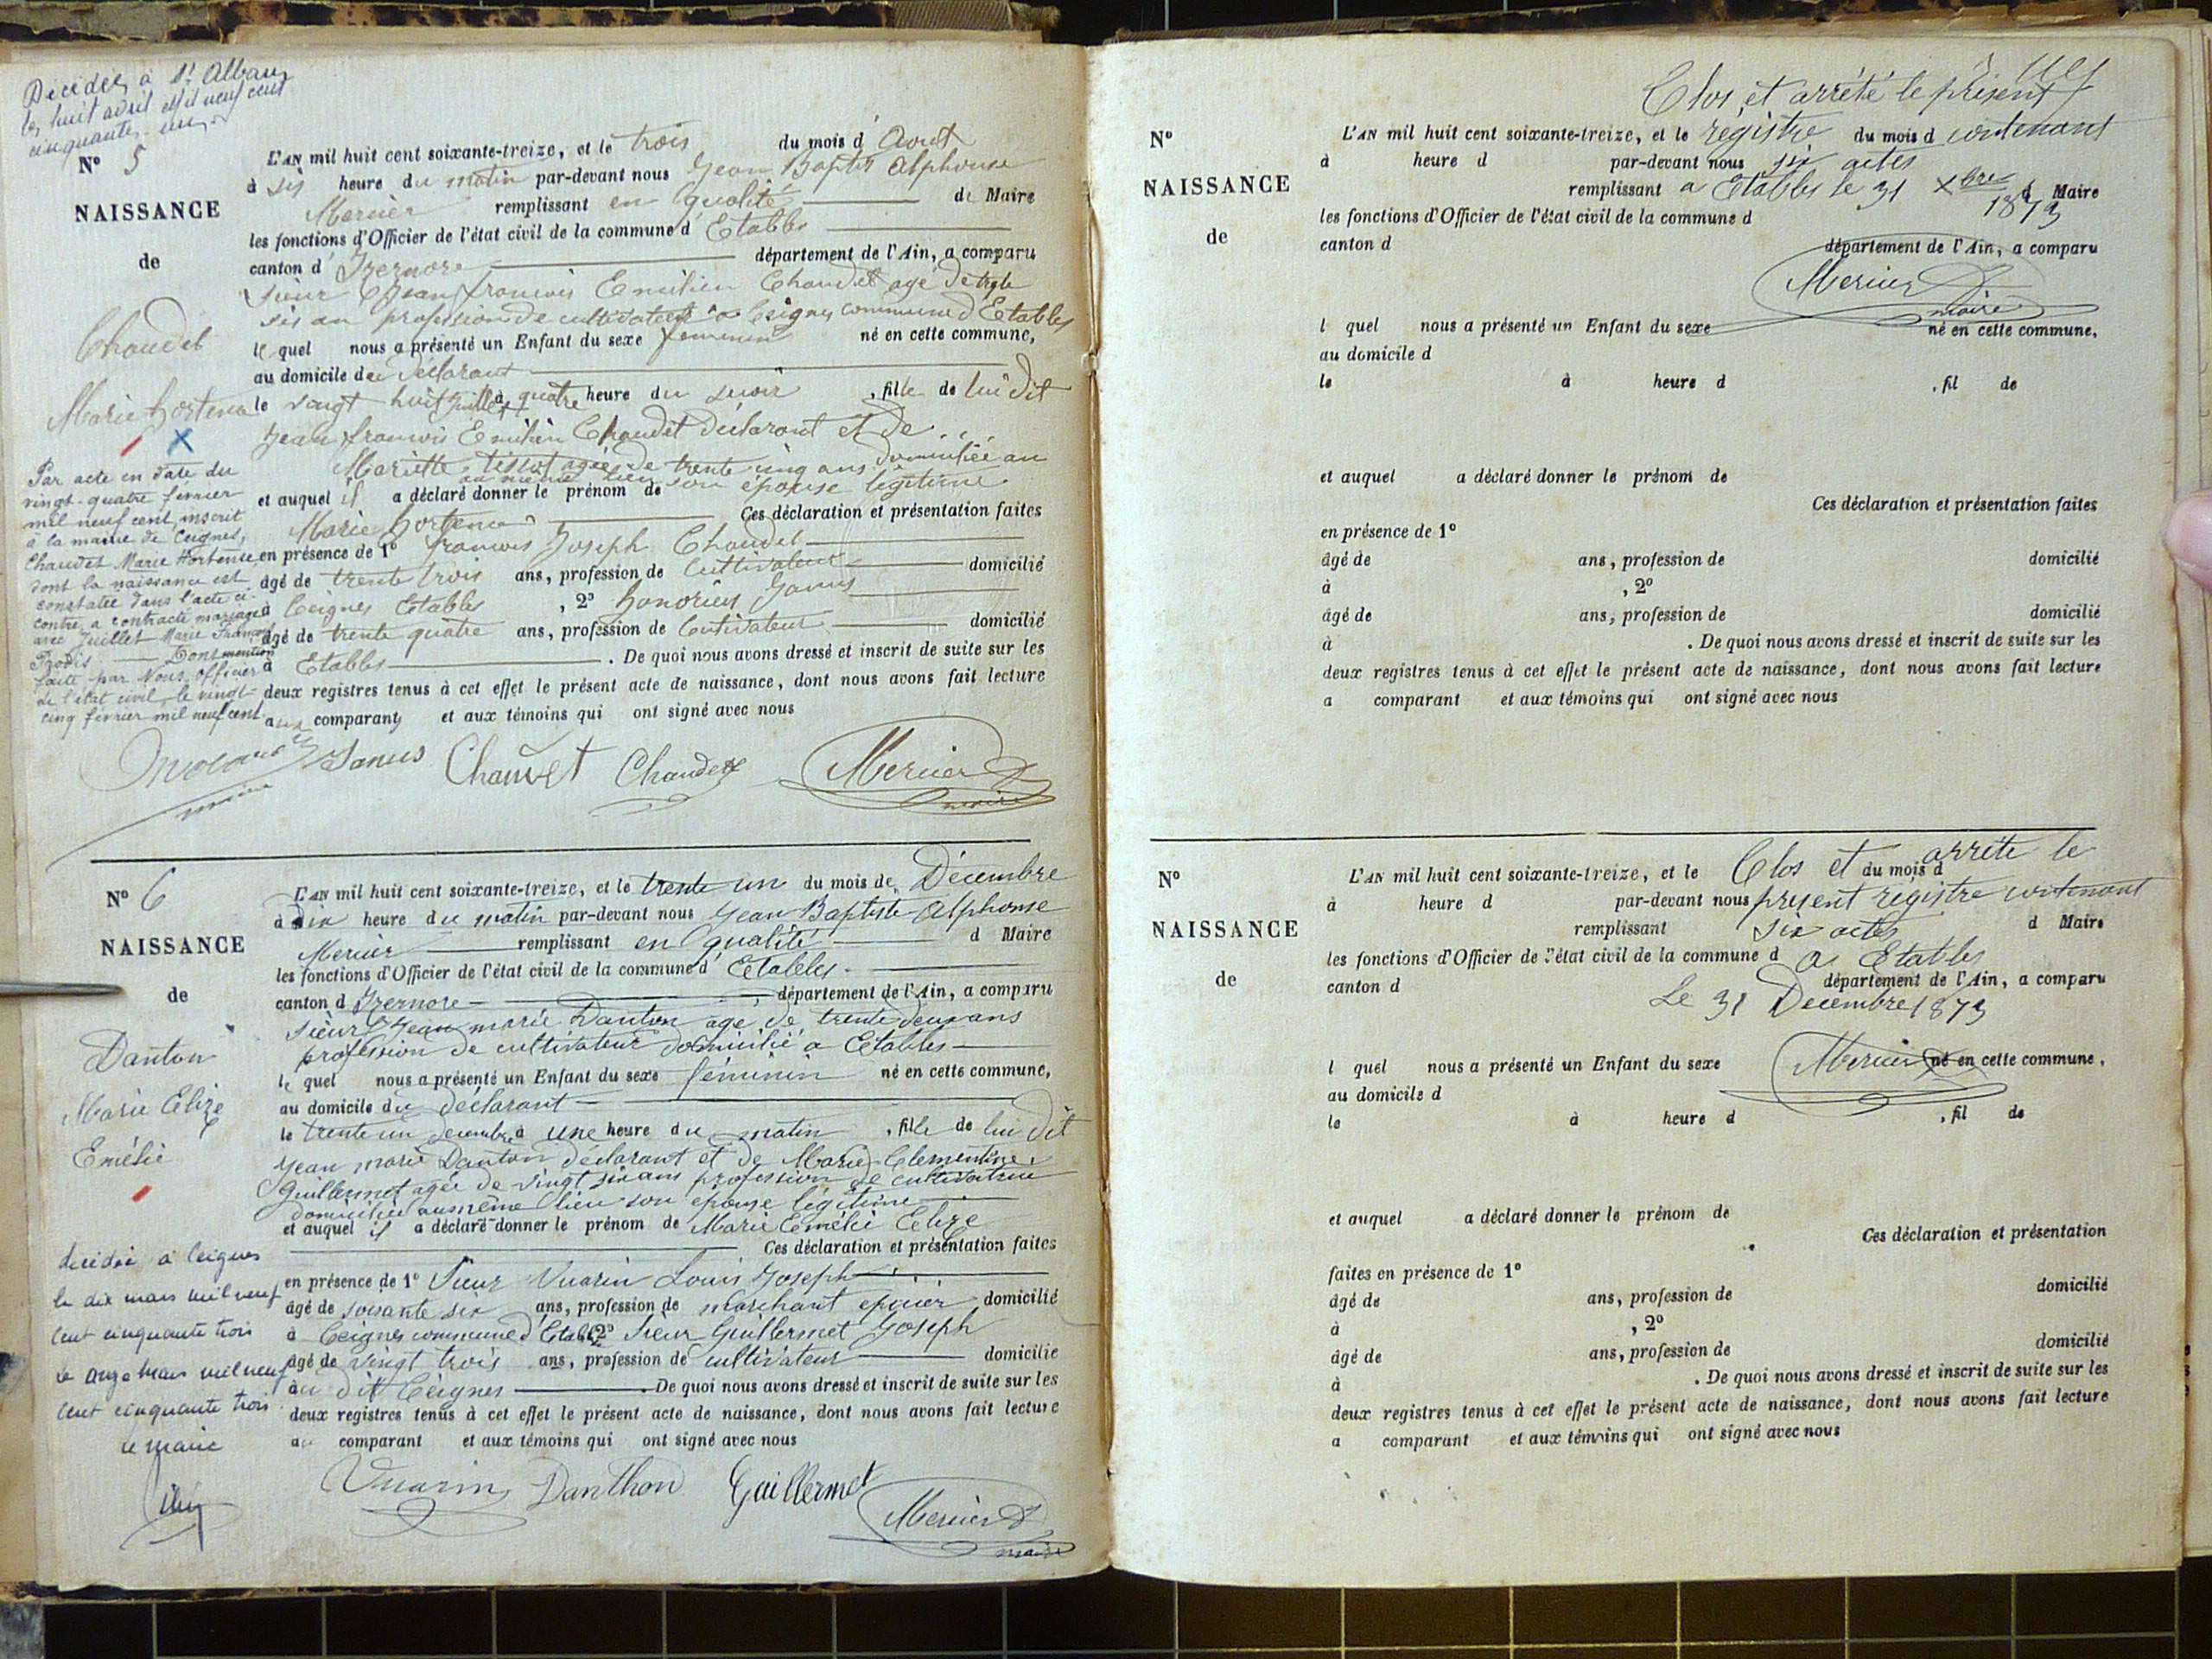 Décédée à St Alban
le huit avril mil neuf cent
cinquante-un
N° 5
NAISSANCE
de
Chaudet
Marie hortense
Par acte en date du
vingt-quatre février
mil neuf cent, inscrit
à la mairie de Ceignes,
Chaudet Marie Hortense
dont la naissance est
constatée dans l'acte ci-
contre, a contracté mariage
avec Juillet Marie François
Dont mention
faite par Nous, officier
de l'état civil, le vingt-
cinq février mil neuf cent
L'AN mil huit cent soixante-treize, et le trois du mois d'Aout
à six heure du matin par-devant nous Jean Baptis Alphonse
Mercier remplissant en qualité de Maire
les fonctions d'Officier de l'état civil de la commune d'Etables
canton d'Izernore département de l'Ain, a comparu
sieur Jean francois Emilien Chaudet agé de trente
six an profession de cultivateur à Ceignes commune d'Etables
le quel nous a présenté un Enfant du sexe feminin né en cette commune,
au domicile du déclarant
le vingt huit juillet à quatre heure du soir , fille de lui dit
Jean francois Emilien Chaudet déclarant et de
Mariette tissot agée de trente cinq ans domiciliée au
au même lieu son épouse légitime
et auquel il a déclaré donner le prénom de
Marie hortense Ces déclaration et présentation faites
en présence de 1° francois Joseph Chaudet
âgé de trente trois ans, profession de Cultivateur domicilié
à Ceignes Etables , 2° honorius Janus
âgé de trente quatre ans, profession de Cultivateur domicilié
à Etables . De quoi nous avons dressé et inscrit de suite sur les
deux registres tenus à cet effet le présent acte de naissance, dont nous avons fait lecture
aux comparants et aux témoins qui ont signé avec nous
Janus Chauvet Chaudet Mercier
maire
N° 6
NAISSANCE
de
Danton
Marie Elize
Emélie
décédée à Ceignes
le dix mars mil neuf
cent cinquante trois
Le onze mars mil neuf
cent cinquante trois
le maire
L'AN mil huit cent soixante-treize, et le trente un du mois de Décembre
à dix heure du matin par-devant nous Jean Baptiste Alphonse
Mercier remplissant en qualité d Maire
les fonctions d'Officier de l'état civil de la commune d'Etables
canton d Izernore département de l'Ain, a comparu
sieur Jean marie Danton age de trente deux ans
profession de cultivateur domicilié a Etables
le quel nous a présenté un Enfant du sexe féminin né en cette commune,
au domicile du déclarant
le trente un decembre à une heure du matin , fille de lui dit
Jean marie Danton déclarant et de Marie Clementine
Guillermet agée de vingt six ans profession de cultivatrice
domiciliée au même lieu son epouse légitime
et auquel il a déclaré donner le prénom de Marie Emélie Elize
Ces déclaration et présentation faites
en présence de 1° Sieur Vuarin Louis Joseph
âgé de soixante six ans, profession de marchant epicier domicilié
à Ceignes commune d'Etables 2° Sieur Guillermet Joseph
âgé de vingt trois ans, profession de cultivateur domicilié
au dit Ceignes . De quoi nous avons dressé et inscrit de suite sur les
deux registres tenus à cet effet le présent acte de naissance, dont nous avons fait lecture
au comparant et aux témoins qui ont signé avec nous
Vuarin Danthon Guillermet
Mercier
maire
Clos et arrété le présent
N°
NAISSANCE
de
L'AN mil huit cent soixante-treize, et le régistre du mois d contenant
à heure d par-devant nous six actes
remplissant a Etables le 31 Xbre d Maire
1873
les fonctions d'Officier de l'état civil de la commune d
canton d département de l'Ain, a comparu
Mercier
maire
l quel nous a présenté un Enfant du sexe né en cette commune,
au domicile d
le à heure d , fil de
et auquel a déclaré donner le prénom de
Ces déclaration et présentation faites
en présence de 1°
âgé de ans, profession de domicilié
à , 2°
âgé de ans, profession de domicilié
à . De quoi nous avons dressé et inscrit de suite sur les
deux registres tenus à cet effet le présent acte de naissance, dont nous avons fait lecture
a comparant et aux témoins qui ont signé avec nous
N°
NAISSANCE
de
L'AN mil huit cent soixante-treize, et le Clos et du mois d arrété le
à heure d par-devant nous présent régistre contenant
remplissant six actes d Maire
les fonctions d'Officier de l'état civil de la commune d a Etables
canton d département de l'Ain, a comparu
Le 31 Decembre 1873
l quel nous a présenté un Enfant du sexe Mercier né en cette commune,
au domicile d
le à heure d , fil de
et auquel a déclaré donner le prénom de
Ces déclaration et présentation
faites en présence de 1°
âgé de ans, profession de domicilié
à , 2°
âgé de ans, profession de domicilié
à . De quoi nous avons dressé et inscrit de suite sur les
deux registres tenus à cet effet le présent acte de naissance, dont nous avons fait lecture
a comparant et aux témoins qui ont signé avec nous